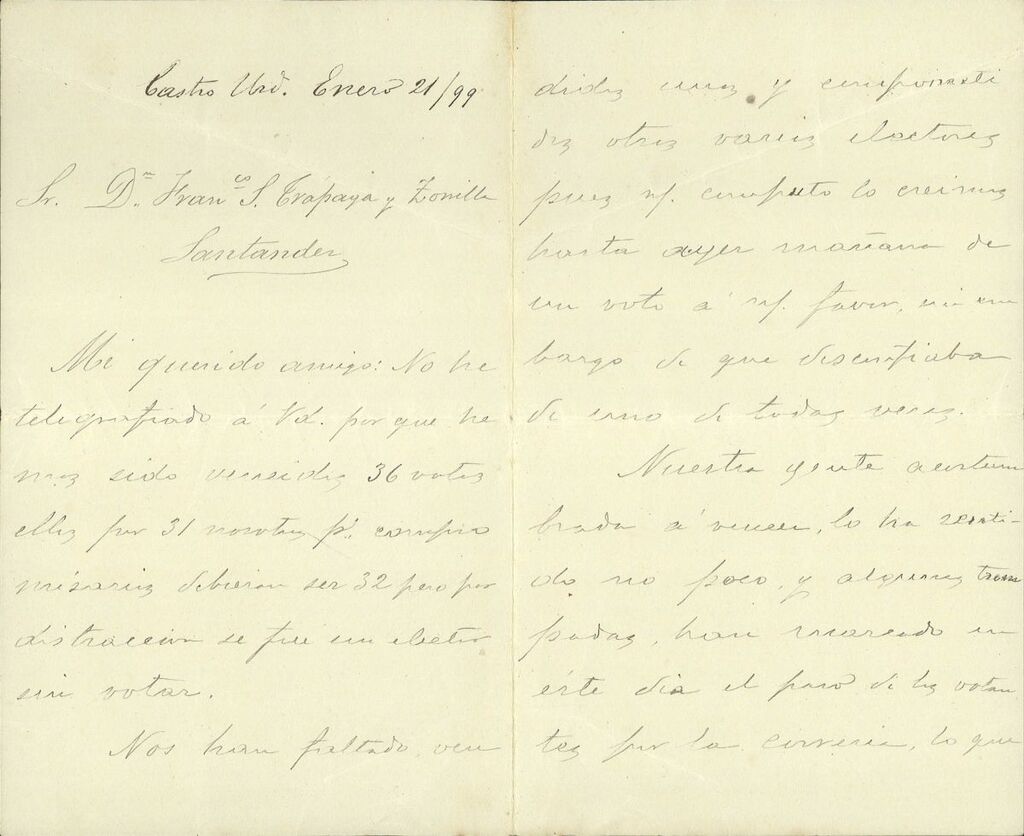 Castro Urd. Enero 21/99
Sr. Dn. Franco S. Trápaga y Zorrilla
Santander
Mi querido amigo: No he
telegrafiado á Vd. por que he
mos sido vencidos 36 votos
ellos por 31 nosotros p.
misarios debieron ser 32 pero por
distraccion se fue un elector
sin votar.
Nos han faltado, ven
didos unos y
dos otros varios electores
pues nf. computo lo creimos
hasta ayer mañana de
un voto á nf. favor, sin em
bargo de que desconfiaba
de uno de todas veras.
Nuestra gente acostum
brada á vencer, lo ha senti-
do no poco, y algunas trom
padas, han marcado en
éste dia el paso de los votan
tes por la correria, lo que